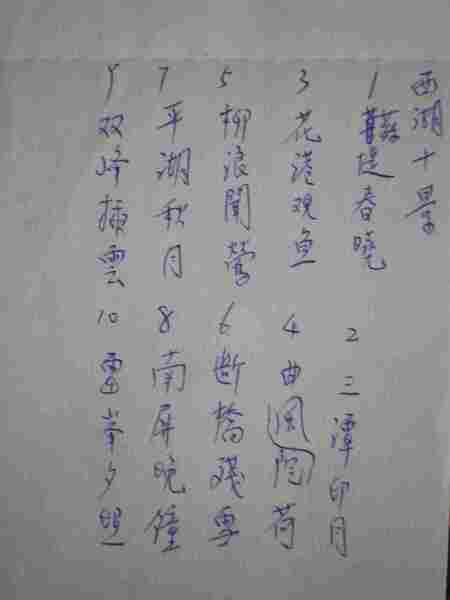 西湖十景
1 蘇堤春曉
2 三潭印月
3 花港观鱼
4 曲風院荷
5 柳浪聞鶯
6 断橋殘雪
7 平湖秋月
8 南屏晚鐘
9 双峰插雲
10 雷峯夕照